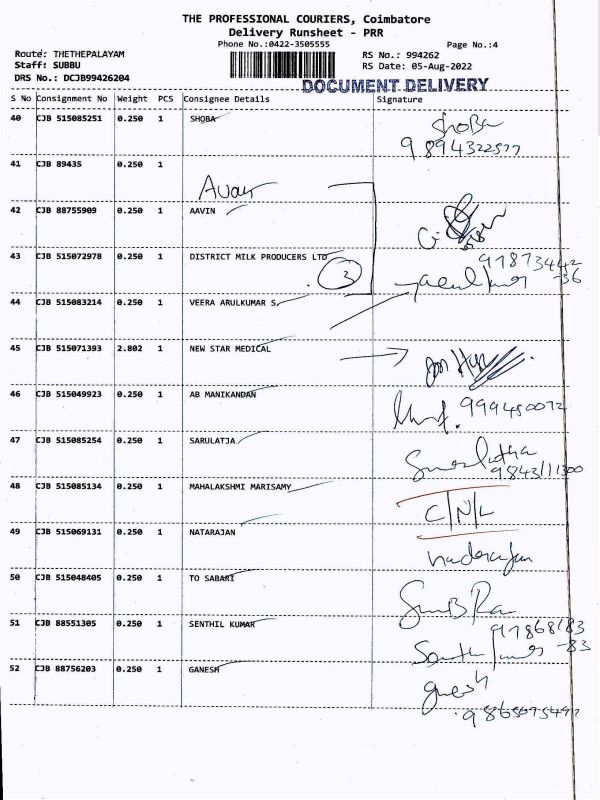 THE PROFESSIONAL COURIERS, Coimbatore
Delivery Runsheet - PRR
Phone No.:0422-3505555
Page No.:4
Route: THETHEPALAYAM
Staff: SUBBU
DRS No.: DCJB99426204
RS No.: 994262
RS Date: 05-Aug-2022
DOCUMENT DELIVERY
S No Consignment No Weight PCS Consignee Details Signature
40 CJB 515085251 0.250 1 SHOBA ShoBa
41 CJB 89435 0.250 1
42 CJB 88755909 0.250 1 AAVIN
43 CJB 515072978 0.250 1 DISTRICT MILK PRODUCERS LTD
3
44 CJB 515083214 0.250 1 VEERA ARULKUMAR S.
45 CJB 515071393 2.802 1 NEW STAR MEDICAL
46 CJB 515049923 0.250 1 AB MANIKANDAN
47 CJB 515085254 0.250 1 SARULATJA
9843111300
48 CJB 515085134 0.250 1 MAHALAKSHMI MARISAMY C/N/L
49 CJB 515069131 0.250 1 NATARAJAN
50 CJB 515048405 0.250 1 TO SABARI
51 CJB 88551305 0.250 1 SENTHIL KUMAR
52 CJB 88756203 0.250 1 GANESH